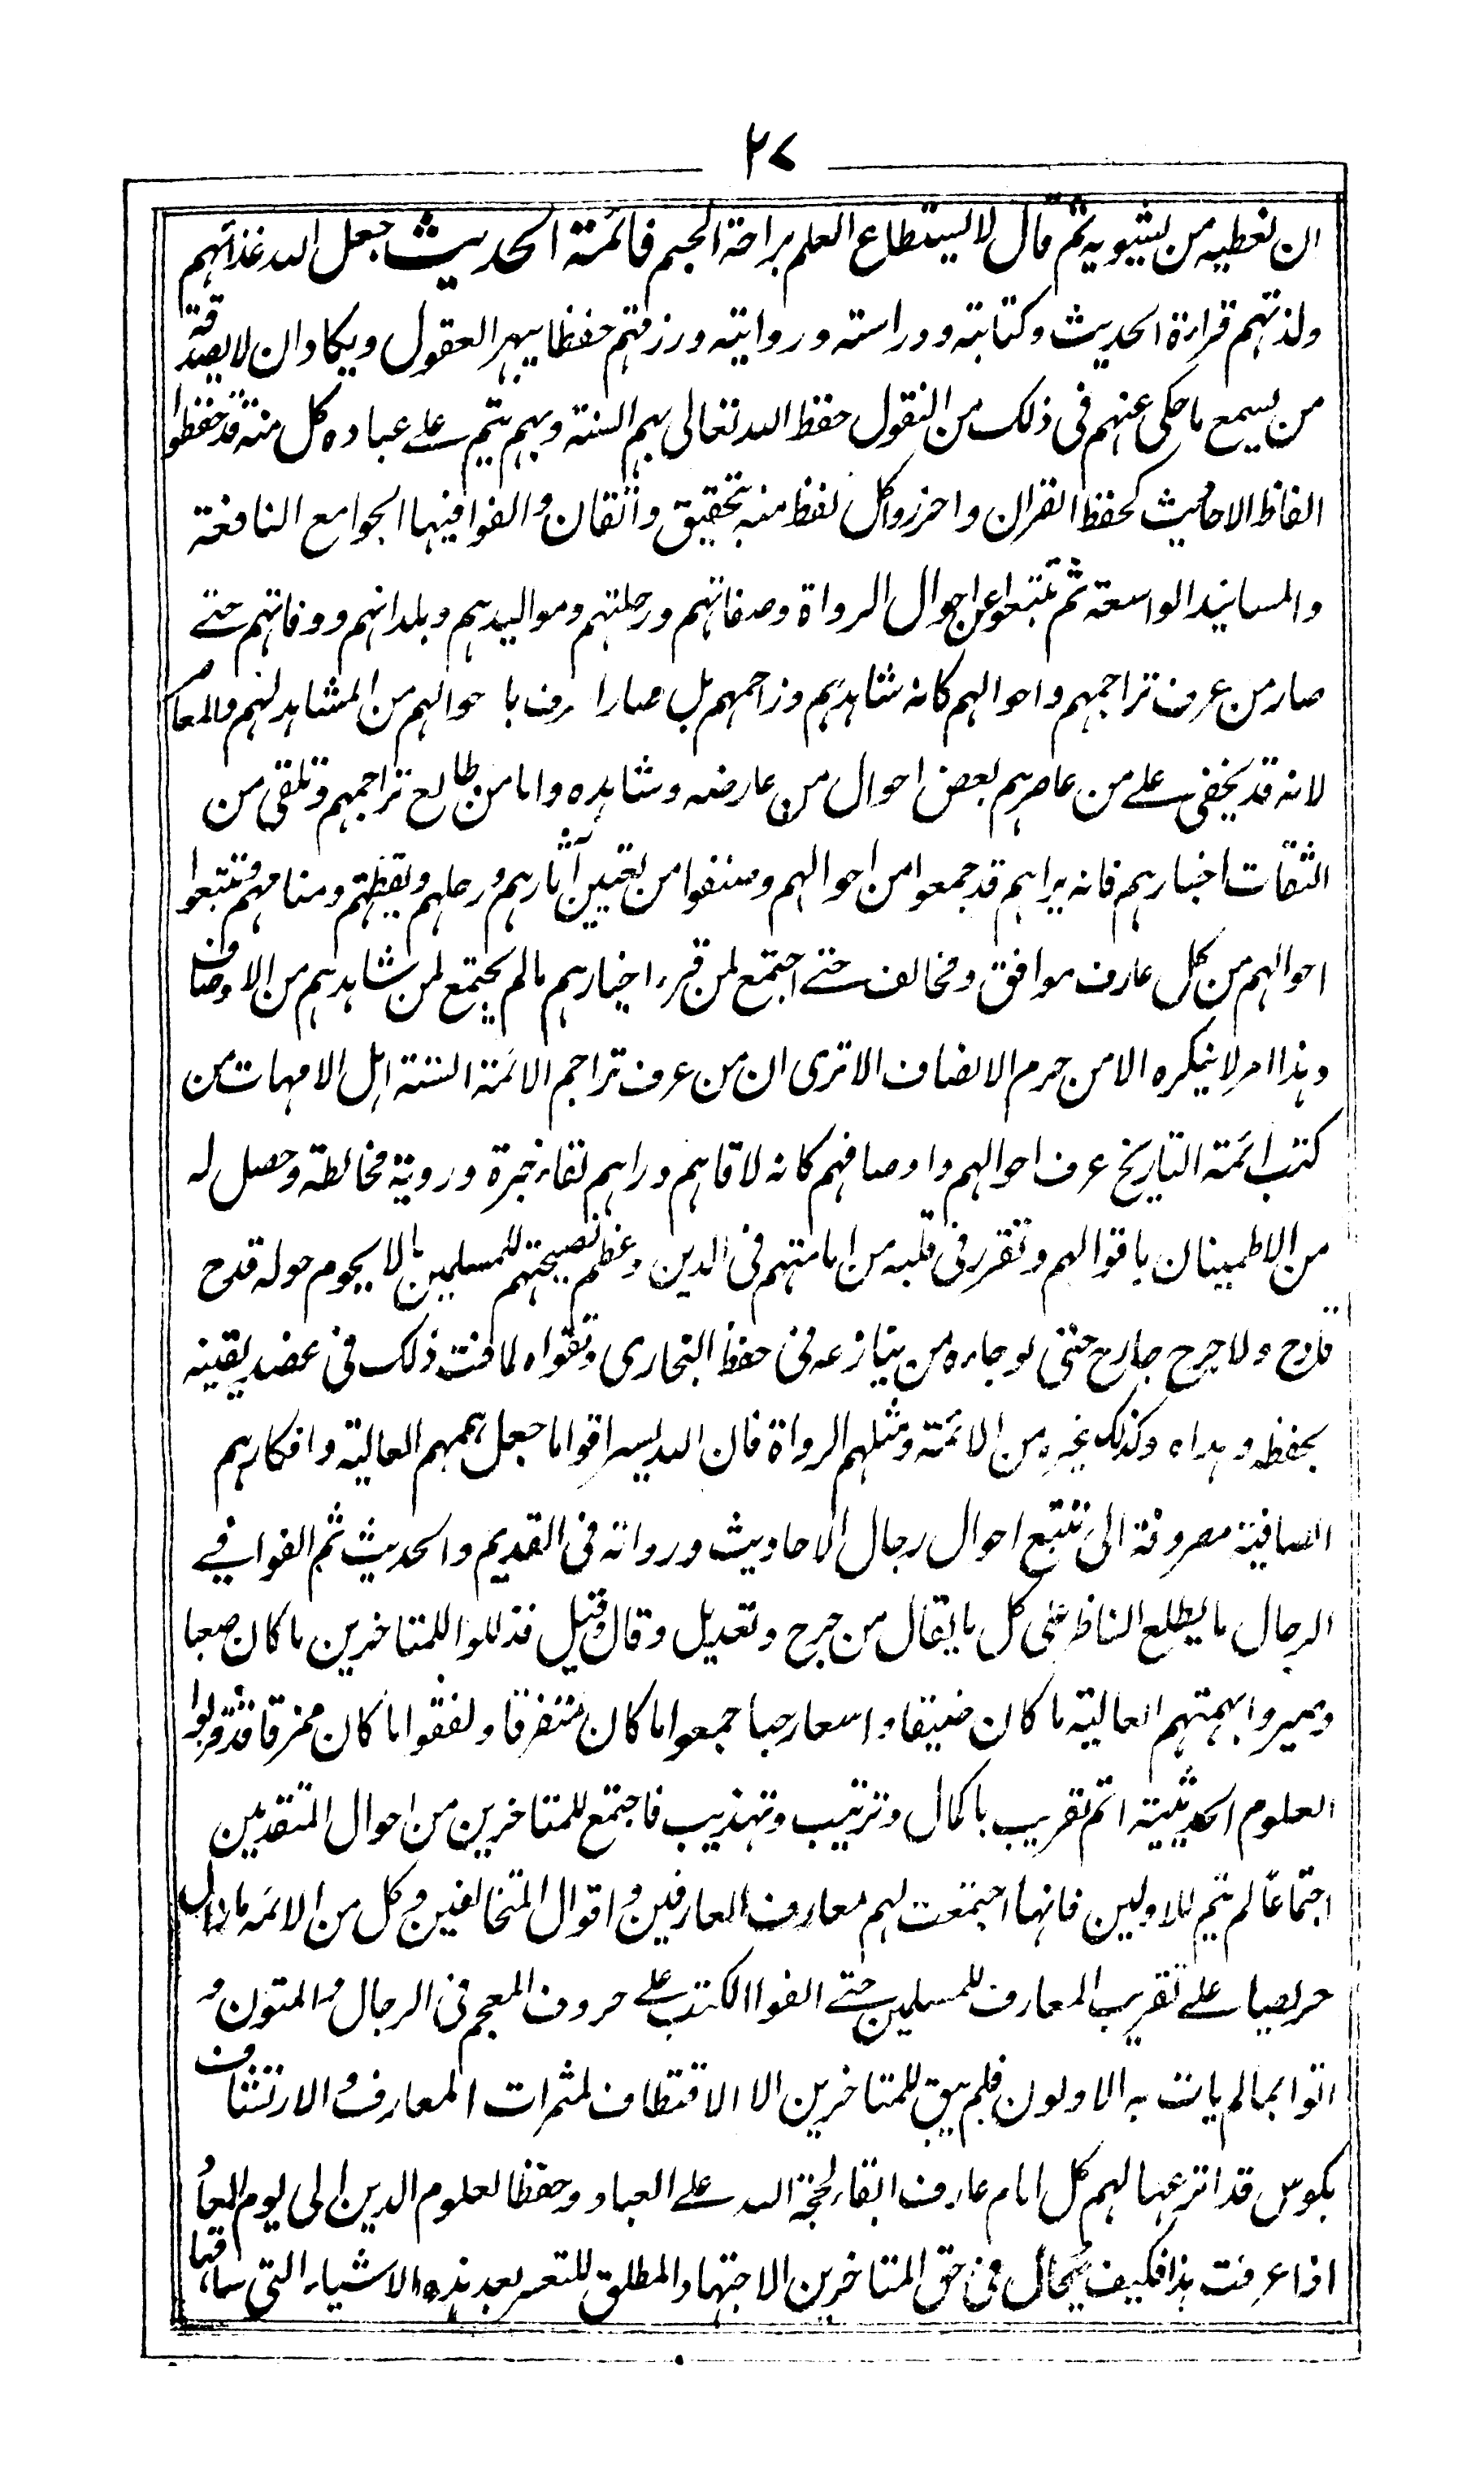 ٢٧
ان نعطيه من يشويه ثم قال لا يستطاع العلم براحة الجسم فائمة الحديث جعل الله غذائهم
ولذتهم قراءة الحديث وكتابته ودراسته وروايته ورزقهم حفظا يبهر العقول ويكاد ان لا يصدقه
من يسمع ما حكى عنهم فى ذلك من النقول حفظ الله تعالى بهم السنة وبهم يتم على عباده كل منة قد حفظوا
الفاظ الاحاديث كحفظ القران واحرزوا كل لفظ منه بتحقيق واتقان والفوا فيها الجوامع النافعة
والمسانيد الواسعة ثم تتبعوا عن احوال الرواة وصفاتهم ورحلتهم ومواليدهم وبلدانهم ووفاتهم حتے
صار من عرف تراجمهم واحوالهم كانه شاهدهم وزاحمهم بل صار اعرف باحوالهم من المشاهد لهم والمعاصر
لانه قد يخفى على من عاصرهم بعض احوال من عارضه وشاهده واما من طالع تراجمهم وتلقى من
الثقات اخبارهم فانه يراهم قد جمعوا من احوالهم وصنفوا من تعيين آثارهم ورحلهم ويقظتهم ومنامهم وتتبعوا
احوالهم من كل عارف موافق ومخالف حتے اجتمع لمن قرء اخبارهم مالم يجتمع لمن شاهدهم من الاوصاف
وهذا امر لا ينكره الا من حرم الانصاف الا ترى ان من عرف تراجم الائمة الستة اهل الامهات من
كتب ائمة التاريخ عرف احوالهم واوصافهم كانه لاقاهم وراهم لقاء خبرة وروية مخالطة وحصل له
من الاطمينان باقوالهم وتقرر فى قلبه من امامتهم فى الدين وعظم نصيحتهم للمسلمين مالا يحوم حوله قدح
قادح ولا جرح جارح حتى لو جاءه من ينازعه فى حفظ البخارى وتقواه لما فت ذلك فى عضد يقينه
بحفظه وهداه وكذلك غيره من الائمة ومثلهم الرواة فان الله يسر اقواما جعل هممهم العالية وافكارهم
الصافية مصروفة الى تتبع احوال رجال الاحاديث ورواته فى القديم والحديث ثم الفوا في
الرجال ما يطلع الناظر على كل ما يقال من جرح وتعديل وقال وقيل فذللوا للمتاخرين ما كان صعبا
وصيروا بهمتهم العالية ما كان ضيقا واسعا رحبا جمعوا ما كان متفرقا ولفقوا ما كان ممزقا قد قربوا
العلوم الحديثية اتم تقريب باكمال وترتيب وتهذيب فاجتمع للمتاخرين من احوال المتقدمين
اجتماعًا لم يتم للاولين فانها اجتمعت لهم معارف العارفين واقوال المتخالفين وكل من الائمة مازال
حريصا على تقريب المعارف للمسلمين حتے الفوا الكتب على حروف المعجم فى الرجال والمتون و
اتوا بمالم يات به الاولون فلم يبق للمتاخرين الا الاقتطاف لثمرات المعارف والارتشاف
بكوس قد اترعها لهم كل امام عارف ابقاء لحجة الله على العباد وحفظا لعلوم الدين الى يوم المعاد
اذا عرفت هذا فكيف يحال فى حق المتاخرين الاجتهاد المطلق للتعسر بعد هذه الاشياء التى ساقها